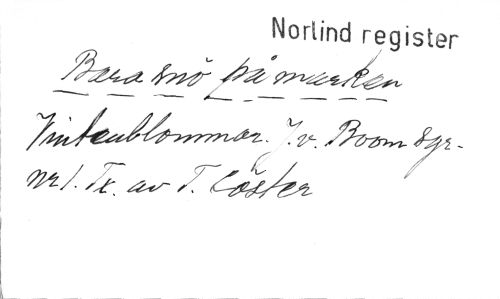 Norlind register
Bara snö på marken
Vinterblommor. J. v. Boom &gr.
nr 1. Tx. av T. Cöster